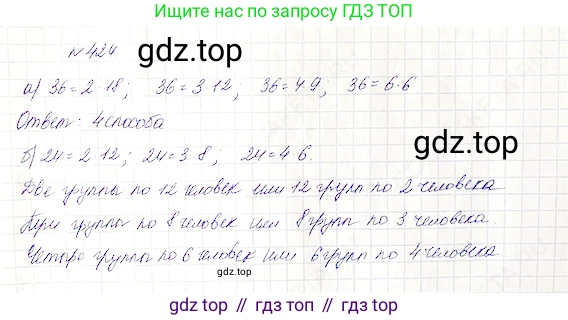 Ищите нас по запросу ГДЗ ТОП
№ 424
gdz.top
а) 36=2·18; 36=3·12; 36=4·9; 36=6·6
Ответ: 4 способа
gdz.top
б) 24=2·12; 24=3·8; 24=4·6.
Две группы по 12 человек или 12 групп по 2 человека
Три группы по 8 человек или 8 групп по 3 человека.
Четыре группы по 6 человек или 6 групп по 4 человека
gdz.top
gdz.top // гдз топ // гдз.топ